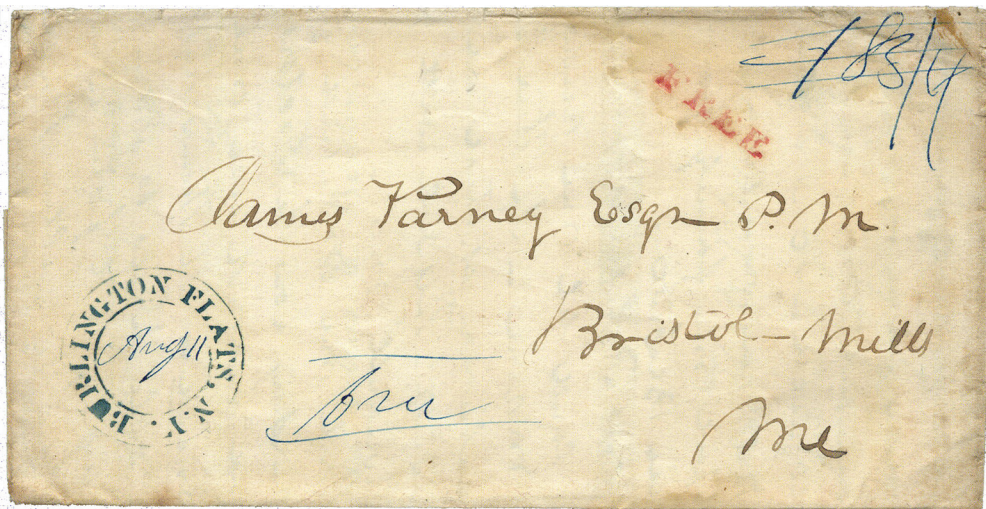 FREE
James Varney Esqr P. M.
Bristol - Mills
Me
BURLINGTON FLATS. N.Y.
Aug 11